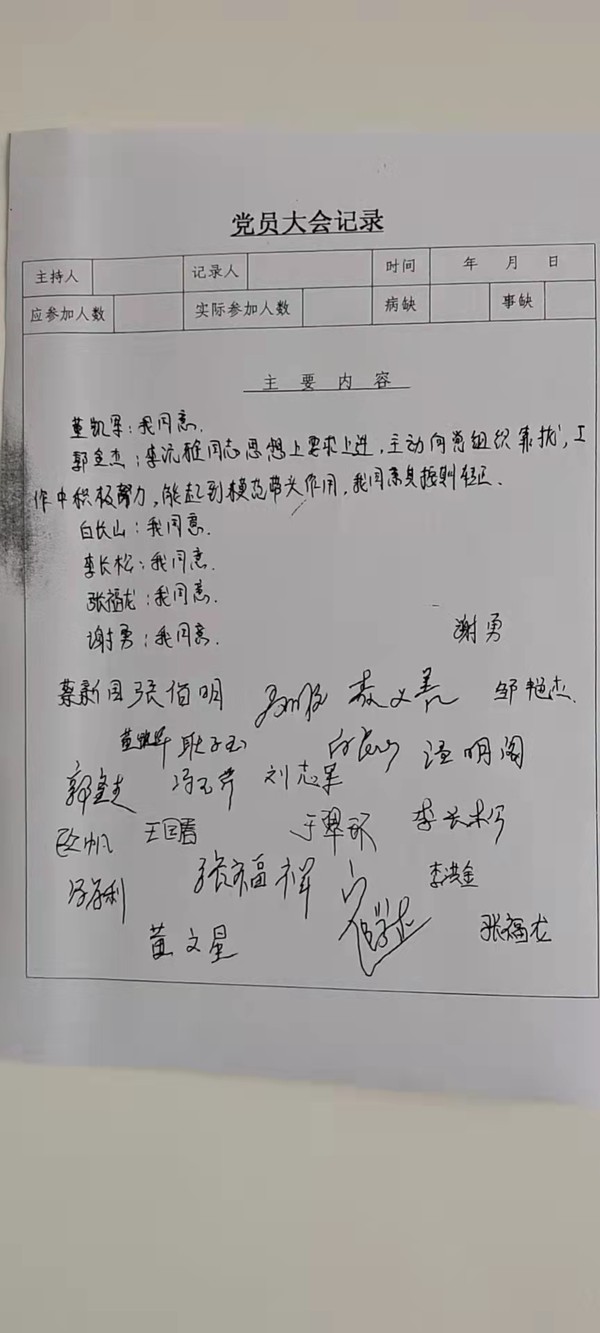 党员大会记录
主持人 记录人 时间 年 月 日
应参加人数 实际参加人数 病缺 事缺
主要内容
董凯军:我同意.
郭金杰:李沅雅同志思想上要求上进,主动向党组织靠拢,工
作中积极努力,能起到模范带头作用,我同意其按期转正.
白长山:我同意.
李长松:我同意.
张福龙:我同意.
谢勇:我同意.
谢勇
蔡新国 张佰明 邹艳杰
刘志军 明阁
王国春 于翠 李长松
张福祥 李洪金
黄文星 张福龙